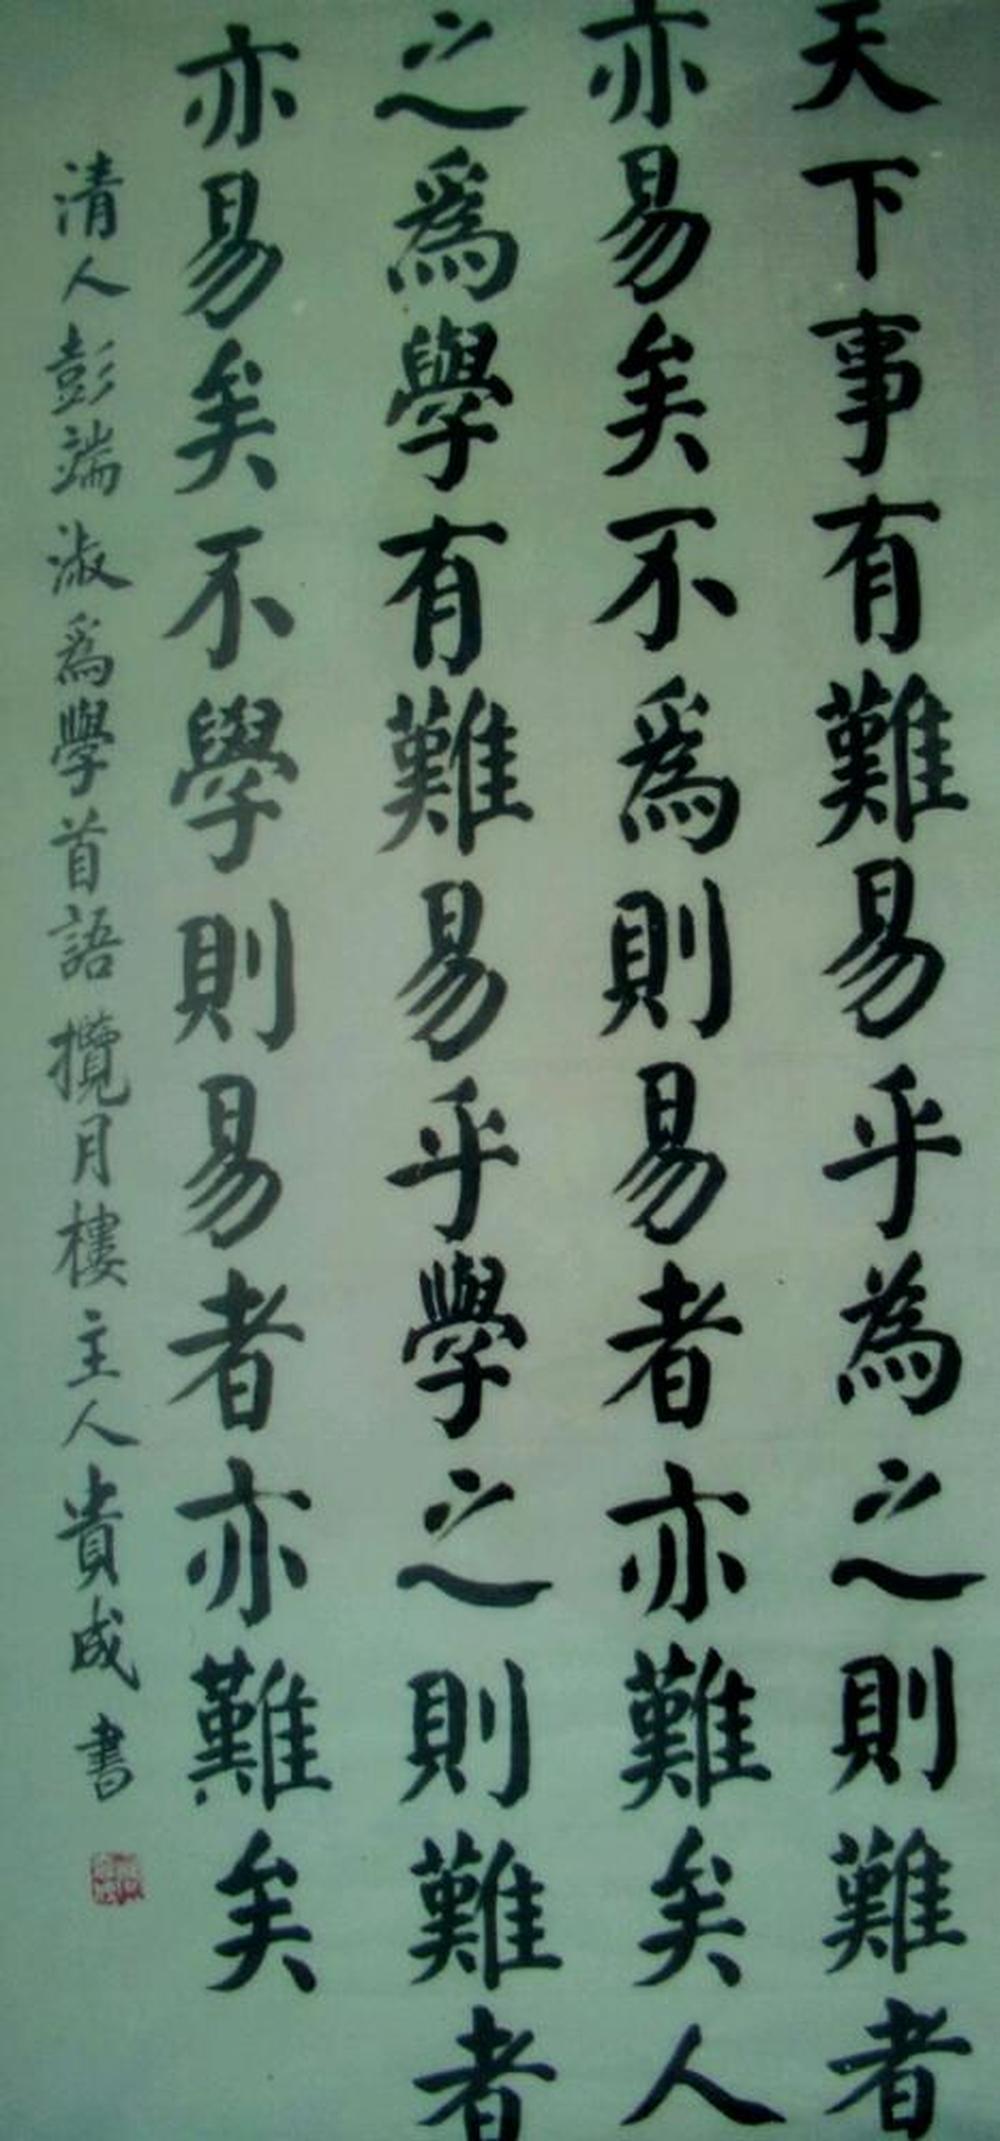 天下事有難易乎為之則難者
亦易矣不爲則易者亦難矣人
之爲學有難易乎學之則難者
亦易矣不學則易者亦難矣
清人彭端淑爲學首語攬月樓主人貴成書